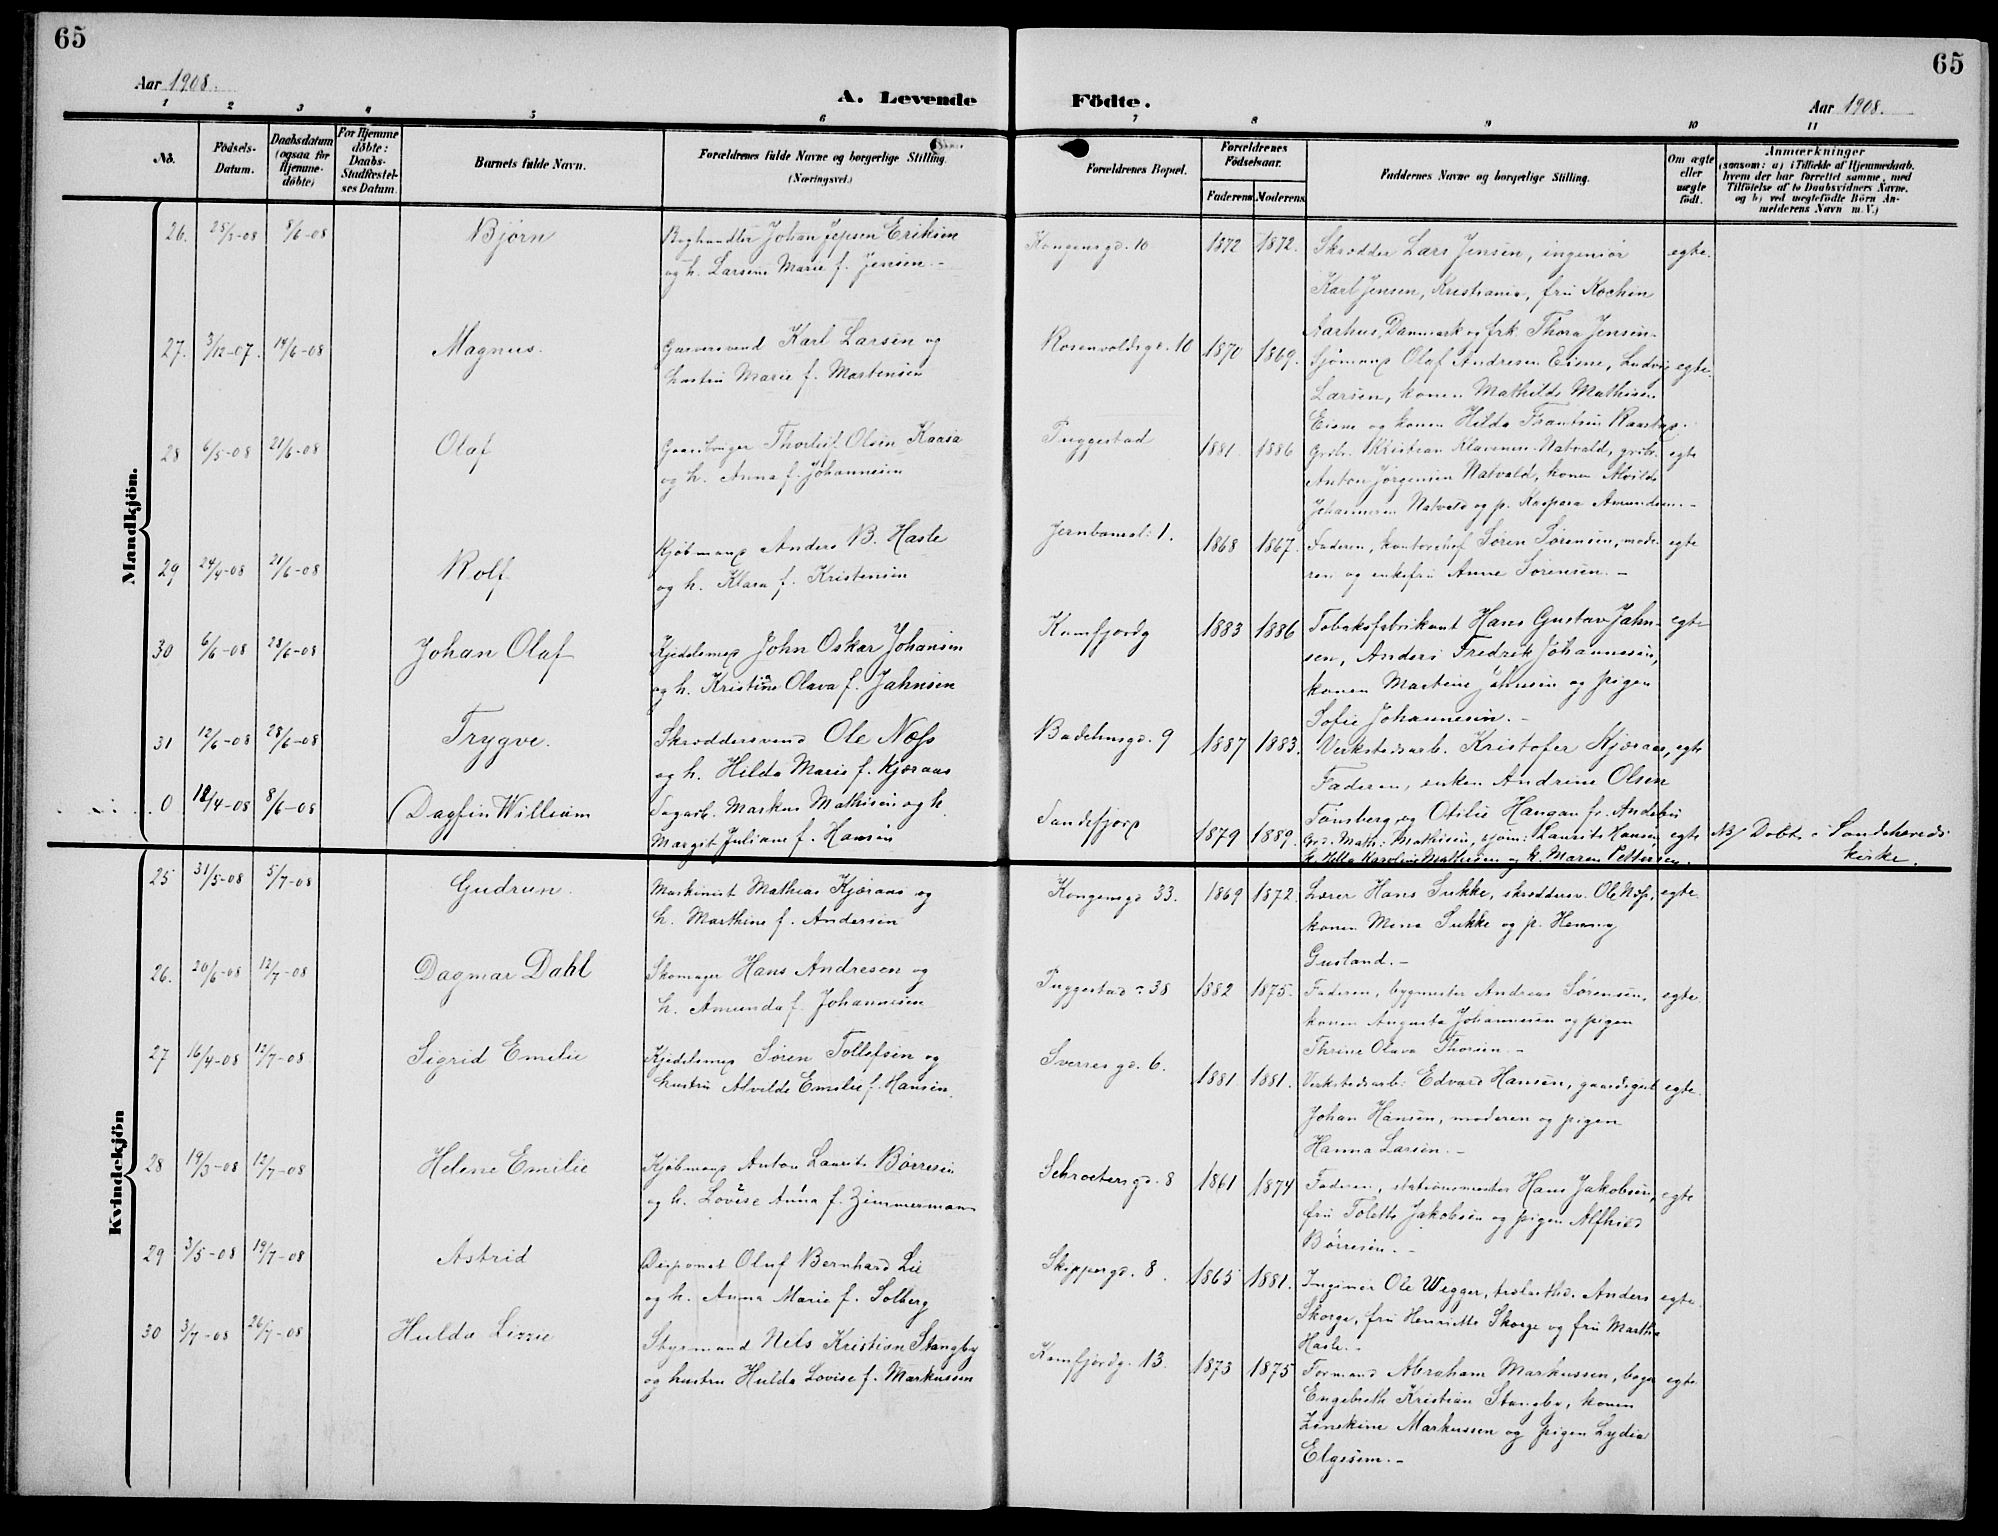 65
Aar 1908.
A. Levende
1 2 3 4 5 6
No.
Födsels-Datum.
Daabsdatum (ogsaa for Hjemme-döbte)
For Hjemme döbte: Daabs-Stadfæstel-ses Datum.
Barnets fulde Navn.
Forældrenes fulde Navne og borgerlige Stilling.
(Næringsvei.)
Mandkjön.
26. 25/3-08 8/6-08 Bjørn Boghandler Johan Jepsen Eriksen
og h. Larsine Marie f. Jensen.-
27. 3/12-07. 14/6-08 Magnus. Garversvend Karl Larsen og
hustru Marie f. Martensen
28 6/5-08 21/6-08 Olaf Gaardbruger Thorleif Olsen Kaasa
og h. Anna f. Johannesen
29 24/4-08 21/6-08 Rolf Kjøbmand Anders B. Hasle
og h. Klara f. Kristensen
30 6/6-08 28/6-08 Johan Olaf Kjedelsmed John Oskar Johansen
og h. Kristine Olava f. Jahnsen
31 12/6-08 28/6-08 Trygve. Skræddersvend Ole Næss
og h. Hilda Marie f. Kjæraas
0 12/4-08 8/6-08 Dagfin William Sagarb. Markus Mathisen og h.
Margit Juliane f. Hansen
Kvindekjön
25 31/5-08 5/7-08 Gudrun. Maskinist Mathias Kjæraas og
h. Marthine f. Andersen
26. 20/6-08 12/7-08 Dagmar Dahl Skomager Hans Andresen og
h. Amunda f. Johannesen
27 16/4-08 12/7-08 Sigrid Emelie Kjedelsmed Søren Tollefsen og
hustru Alvilde Emelie f. Hansen.
28 19/3-08 12/7-08 Helene Emilie Kjøbmand Anton Laurits Børresen
og h. Lovise Anna f. Zimmermann
29 3/5-08 19/7-08 Astrid Disponent Oluf Bernhard Lie
og h. Anna Marie f. Solberg
30 3/7-08 26/7-08 Hulda Lizzie Styrmand Nels Kristian Stangby
og hustru Hulda Lovise f. Markussen
65
Födte.
Aar 1908.
7 8 9 10 11
Forældrenes Bopæl.
Forældrenes Födselsaar.
Faderens Moderens
Faddernes Navne og borgerlige Stilling.
Om ægte eller uægte födt.
Anmærkninger
(saasom: a) i Tilfælde af Hjemmedaab,
hvem der har forrettet samme, med
Tilföielse af to Daabsvidners Navne.
og b) ved uægtefödte Börn An-
melderens Navn m. V.)
Kongensgd. 10 1872 1872. Skrædder Lars Jensen, ingeniør egte.
Karl Jensen, Kristiania, fru Kochen
Aarhus, Danmark og frk Thora Jensen.
Rosenvoldsgd. 10 1870 1869. Sjømand Olaf Andresen Eisne, Ludvig egte.
Larsen, konen Mathilde Mathisen
Eisne og konen Hilda Frantsen Raastad.
Puggestad 1881. 1886 Grdbr. Kristian Klavenes Natvald, grdbr. egte
Anton Jørgensen Natvald, konen Alvilde
Johannesen Natvald og p. Kaspara Amundsen.-
Jernbaneal. 1. 1868 1867. Faderen, kontorchef Søren Sørensen, mode- egte
ren og enkefru Anne Sørensen.-
Kamfjordg 1883 1886 Tobaksfabrikant Hans Gustav Jahn- egte
sen, Anders Fredrik Johannesen,
konen Martine Jahnsen og pigen
Sofie Johannesen.-
Badehusgd. 9 1887 1883. Verkstedsarb. Kristofer Kjæraas, egte
Faderen, enken Andrine Olsen
Tønsberg og Otilie Haugan fr. Andebu
Sandefjord 1879 1889. Grd. Math: Mathisen, sjøm. Laurits Hansen, egte NB Døbt i Sandeherreds
k. Hilda Karoline Mathisen og k. Maren Pettersen. kirke.
Kongensgd 33. 1869 1872. Lærer Hans Sukke, skræddersv. Ole Næss, egte.
konen Mena Sukke og p. Henny
Gusland.-
Puggestad 38 1882 1875. Faderen, bygmester Andreas Sørensen, egte
konen Augusta Johannesen og pigen
Thrine Olava Thorsen.-
Sverresgd. 6. 1881. 1881. Verkstedsarb. Edvard Hansen, gaardsgut egte.
Johan Hansen, moderen og pigen
Hanna Larsen.-
Schroetersgd. 8 1861 1874 Faderen, stationsmester Hans Jakobsen, egte
fru Tolette Jakobsen og pigen Alfhild
Børresen.-
Skippergd. 8. 1865 1881. Ingeniør Ole Wegger, trelasthd. Anders egte.
Skorge, fru Henriette Skorge og fru Martha
Hasle.-
Kamfjordg. 13. 1873 1875 Formand Abraham Markussen, bager egte
Engebreth Kristian Stangby, konen
Linekine Markussen og pigen Lydia
Elgesem.-